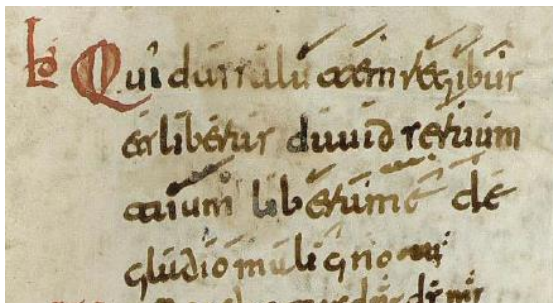 Qui das salutem regibus
et liberas dauid seruum
tuum libera me de
gladio maligno